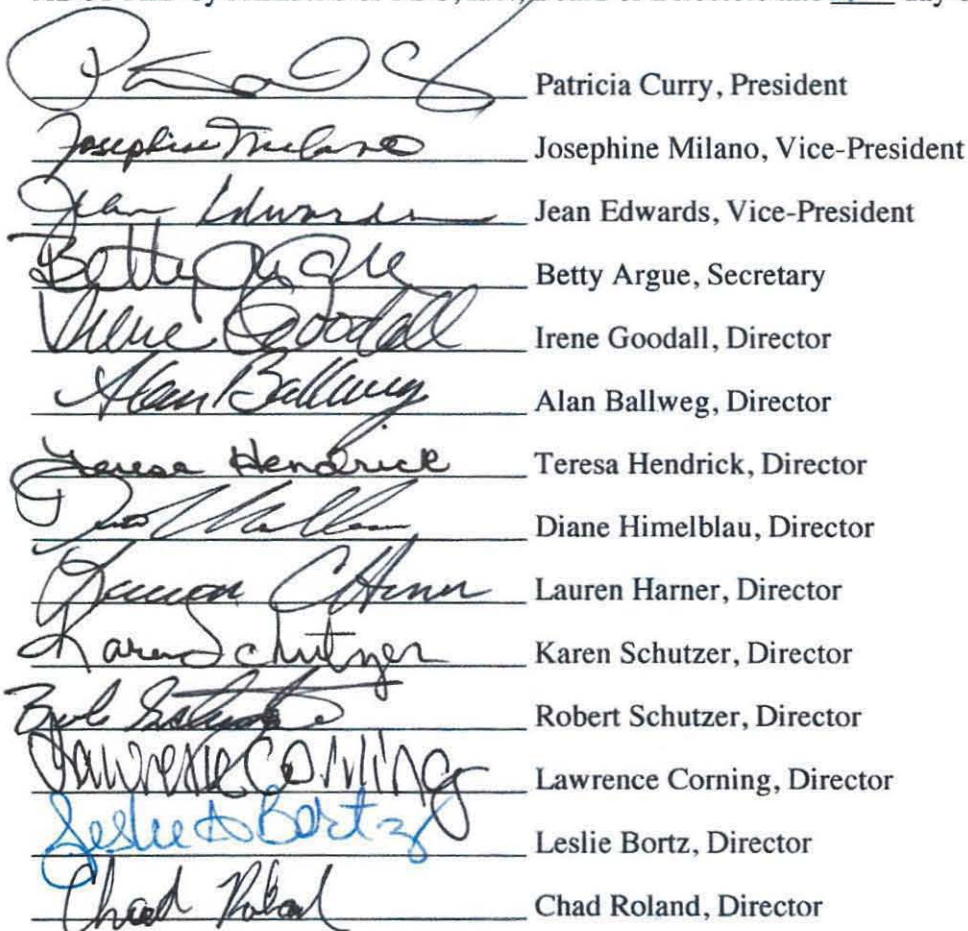 Board of Directors this day
Patricia Curry, President
Josephine Milano Josephine Milano, Vice-President
Jean Edwards Jean Edwards, Vice-President
Betty Argue Betty Argue, Secretary
Irene Goodall Irene Goodall, Director
Alan Ballweg Alan Ballweg, Director
Teresa Hendrick Teresa Hendrick, Director
Diane Himelblau, Director
Lauren Harner, Director
Karen Schutzer Karen Schutzer, Director
Robert Schutzer, Director
Lawrence Corning Lawrence Corning, Director
Leslie A Bortz Leslie Bortz, Director
Chad Roland Chad Roland, Director